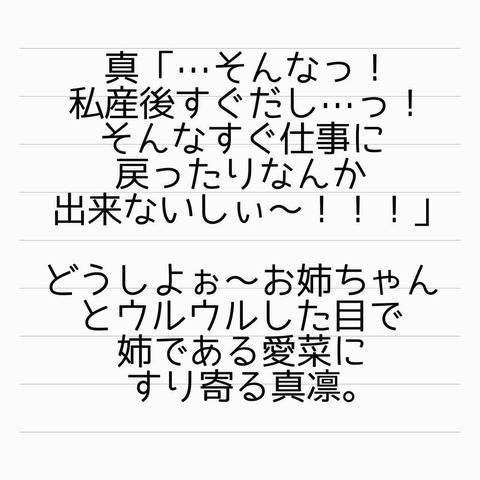 真「…そんなっ！
私産後すぐだし…っ！
そんなすぐ仕事に
戻ったりなんか
出来ないしぃ〜！！！」
どうしよぉ〜お姉ちゃん
とウルウルした目で
姉である愛菜に
すり寄る真凛。